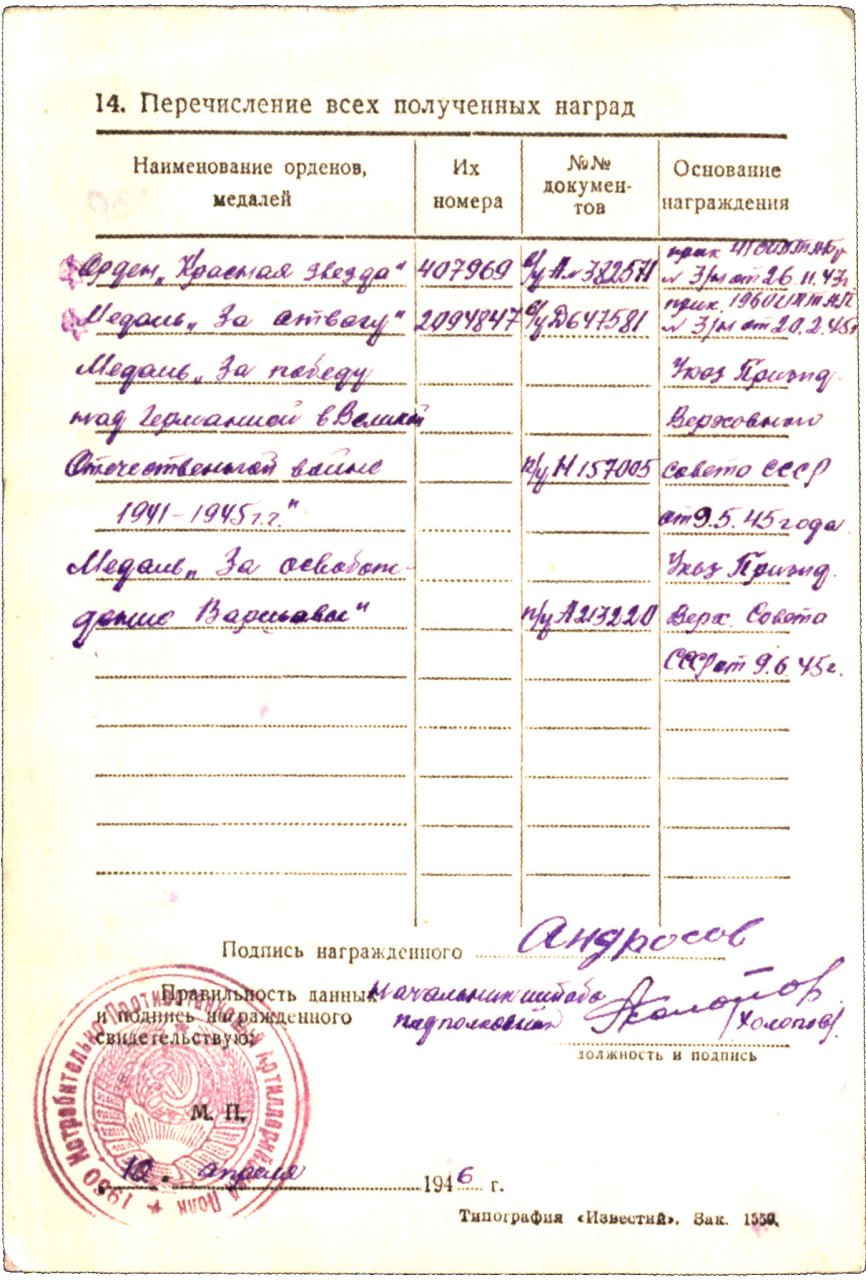 14. Перечисление всех полученных наград
Наименование орденов, медалей
Их номера
№№ документов
Основание награждения
Орден „Красная звезда" 407969 в/у А № 382571 № 3/н от 26.11.43г.
Медаль „За отвагу" 2094847 в/у Д647581 прик. 1960 ИПТАП № 3/н от 20.2.45г
Медаль „За победу Указ Призид.
над Германией в Великой Верховного
Отечественной войне п/у Н 157005 Совета СССР
1941-1945 г.г." от 9.5.45 года
Медаль „За освобож- Указ Призид.
дение Варшавы" п/у А213220 Верх. Совета
СССР от 9.6.45г.
Подпись награжденного Андросов
Правильность данных и подпись награжденного свидетельствую:
Начальник штаба
подполковник Холопов /Холопов/
должность и подпись
1960 Истребительно Противотанковый Артиллерийский Полк
М. П.
10 апреля 1946 г.
Типография «Известий». Зак. 1550.